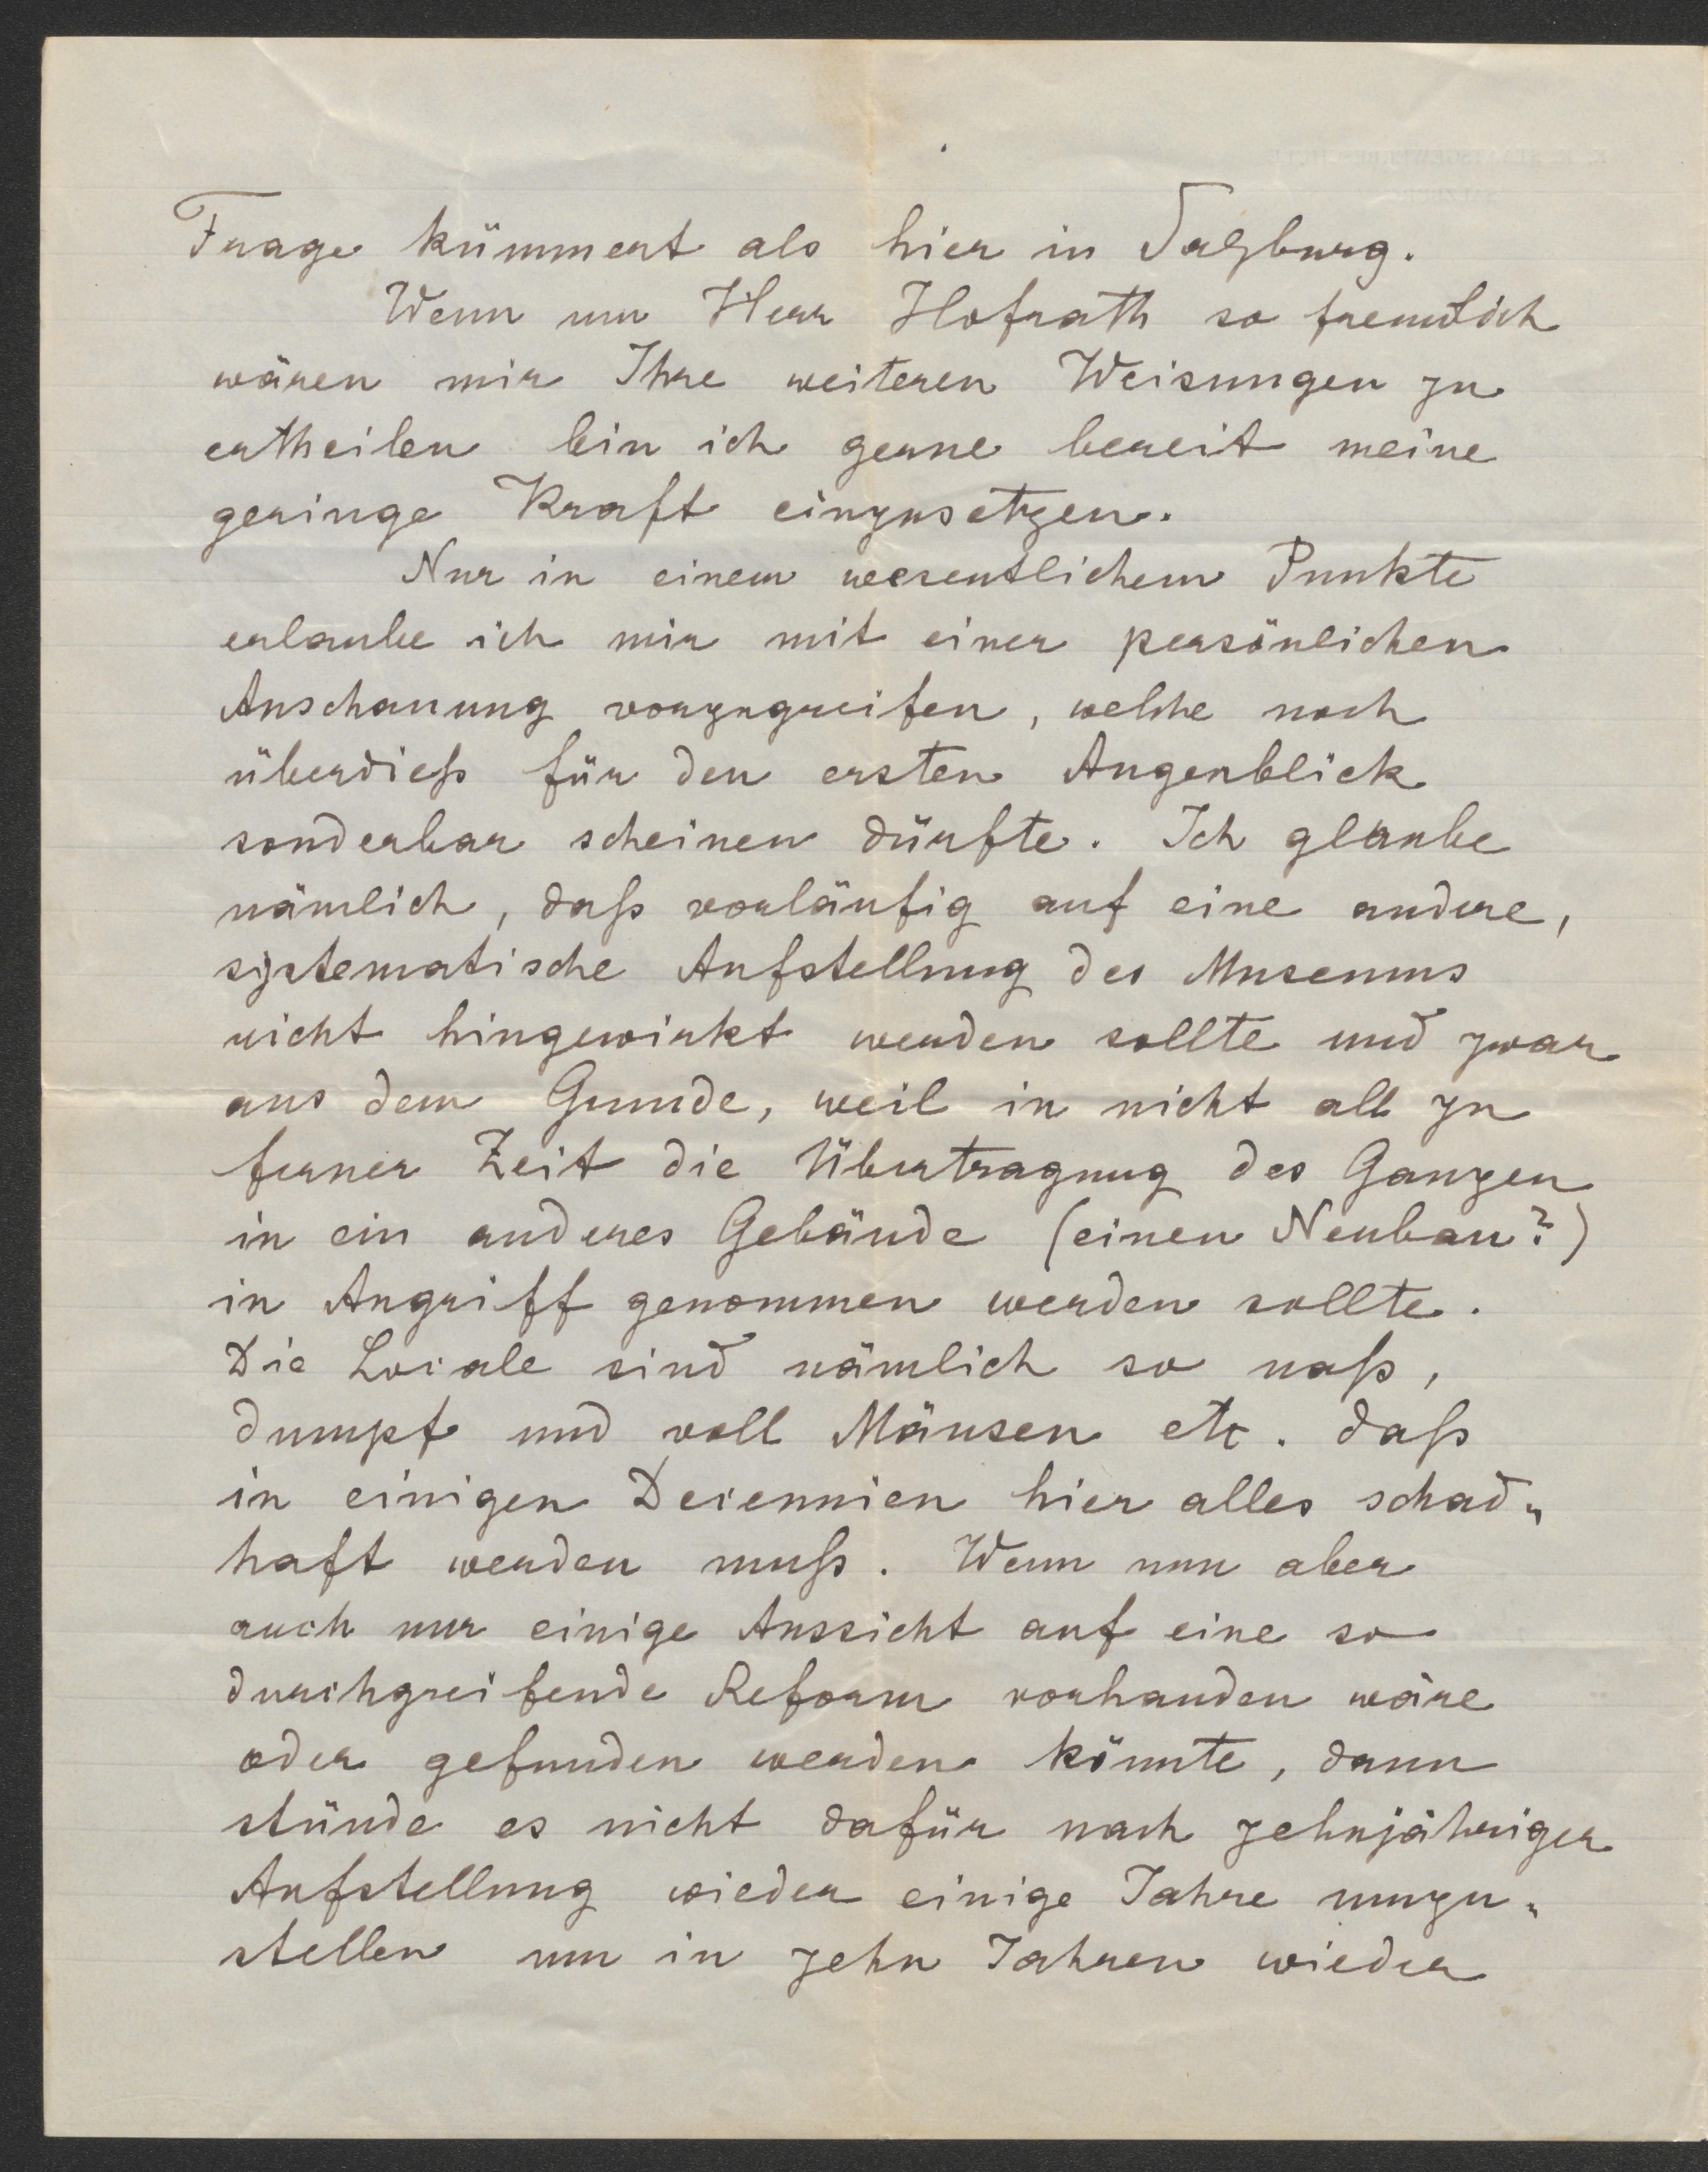 Frage kümmert als hier in Salzburg.
Wenn nun Herr Hofrath so freundlich
wären mir Ihre weiteren Weisungen zu
ertheilen bin ich gerne bereit meine
geringe Kraft einzusetzen.
Nur in einem wesentlichem Punkte
erlaube ich mir mit einer persönlichen
Anschauung vorzugreifen, welche noch
überdieß für den ersten Augenblick
sonderbar scheinen dürfte. Ich glaube
nämlich, daß vorläufig auf eine andere,
systematische Aufstellung des Museums
nicht hingewirkt werden sollte und zwar
aus dem Grunde, weil in nicht all zu
ferner Zeit die Übertragung des Ganzen
in ein anderes Gebäude (einen Neubau?)
in Angriff genommen werden sollte.
Die Locale sind nämlich so naß,
dumpf und voll Mäusen etc. daß
in einigen Decennien hier alles schad„
haft werden muß. Wenn nun aber
auch nur einige Aussicht auf eine so
durchgreifende Reform vorhanden wäre
oder gefunden werden könnte, dann
stünde es nicht dafür nach zehnjähriger
Aufstellung wieder einige Jahre umzu„
stellen um in zehn Jahren wieder